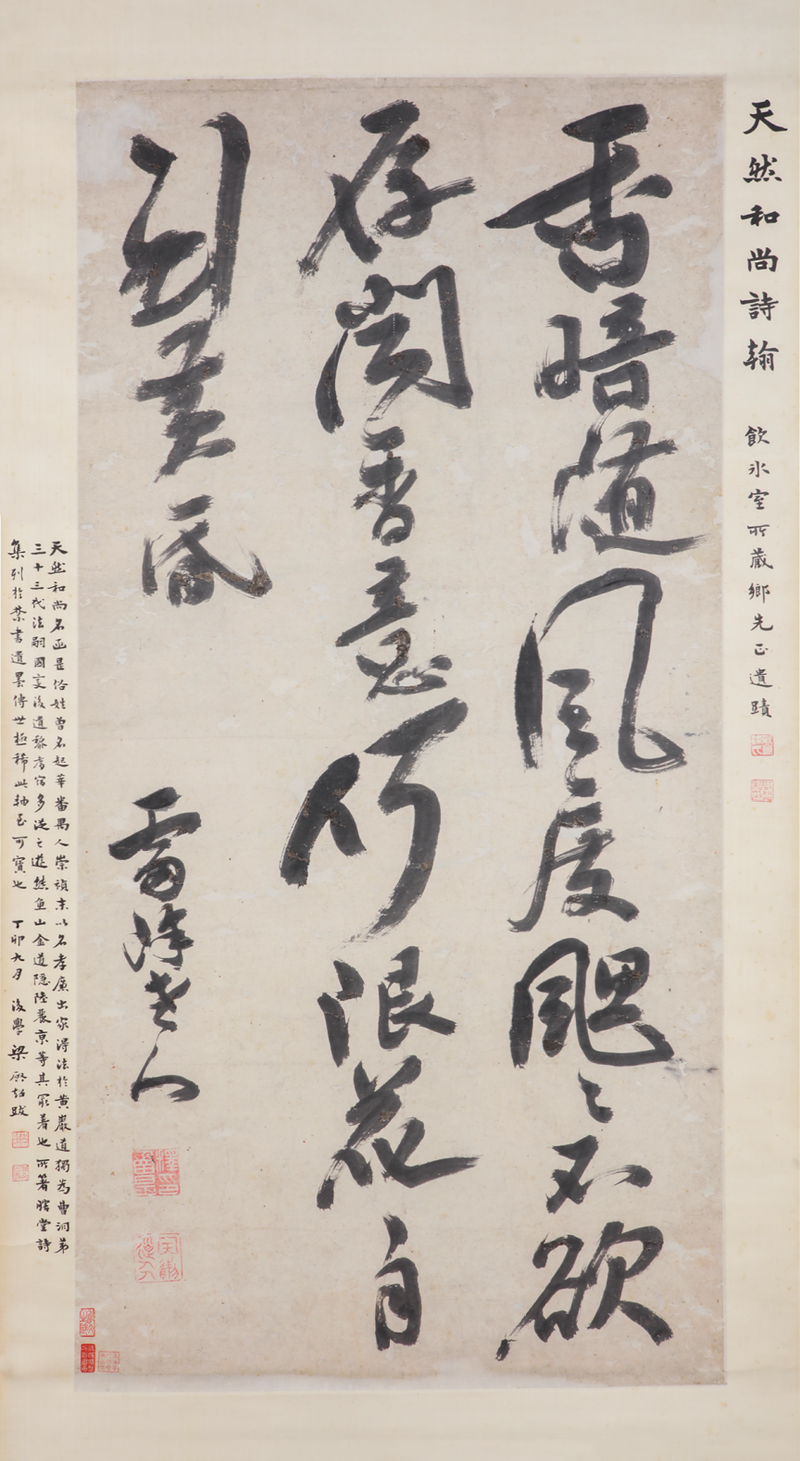 天然和尚詩翰 飲冰室所藏鄉先正遺蹟
香暗隨風度颸〻不欲
存聞香意何限花自
到黃昏
雷峰老人
天然和尚名函昰俗姓曾名起莘番禺人崇禎末以名孝廉出家得法於黃巖道獨為曹洞第
三十三代法嗣國變後遺黎耆宿多從之遊熊魚山金道隱陸麗京等其最著也所著瞎堂詩
集列於禁書遺墨傳世極稀此軸至可寶也 丁卯九月 後學梁啟超跋